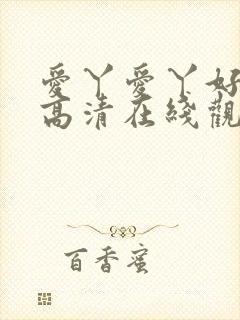 愛丫愛丫好
高清在綫觀
百香蜜